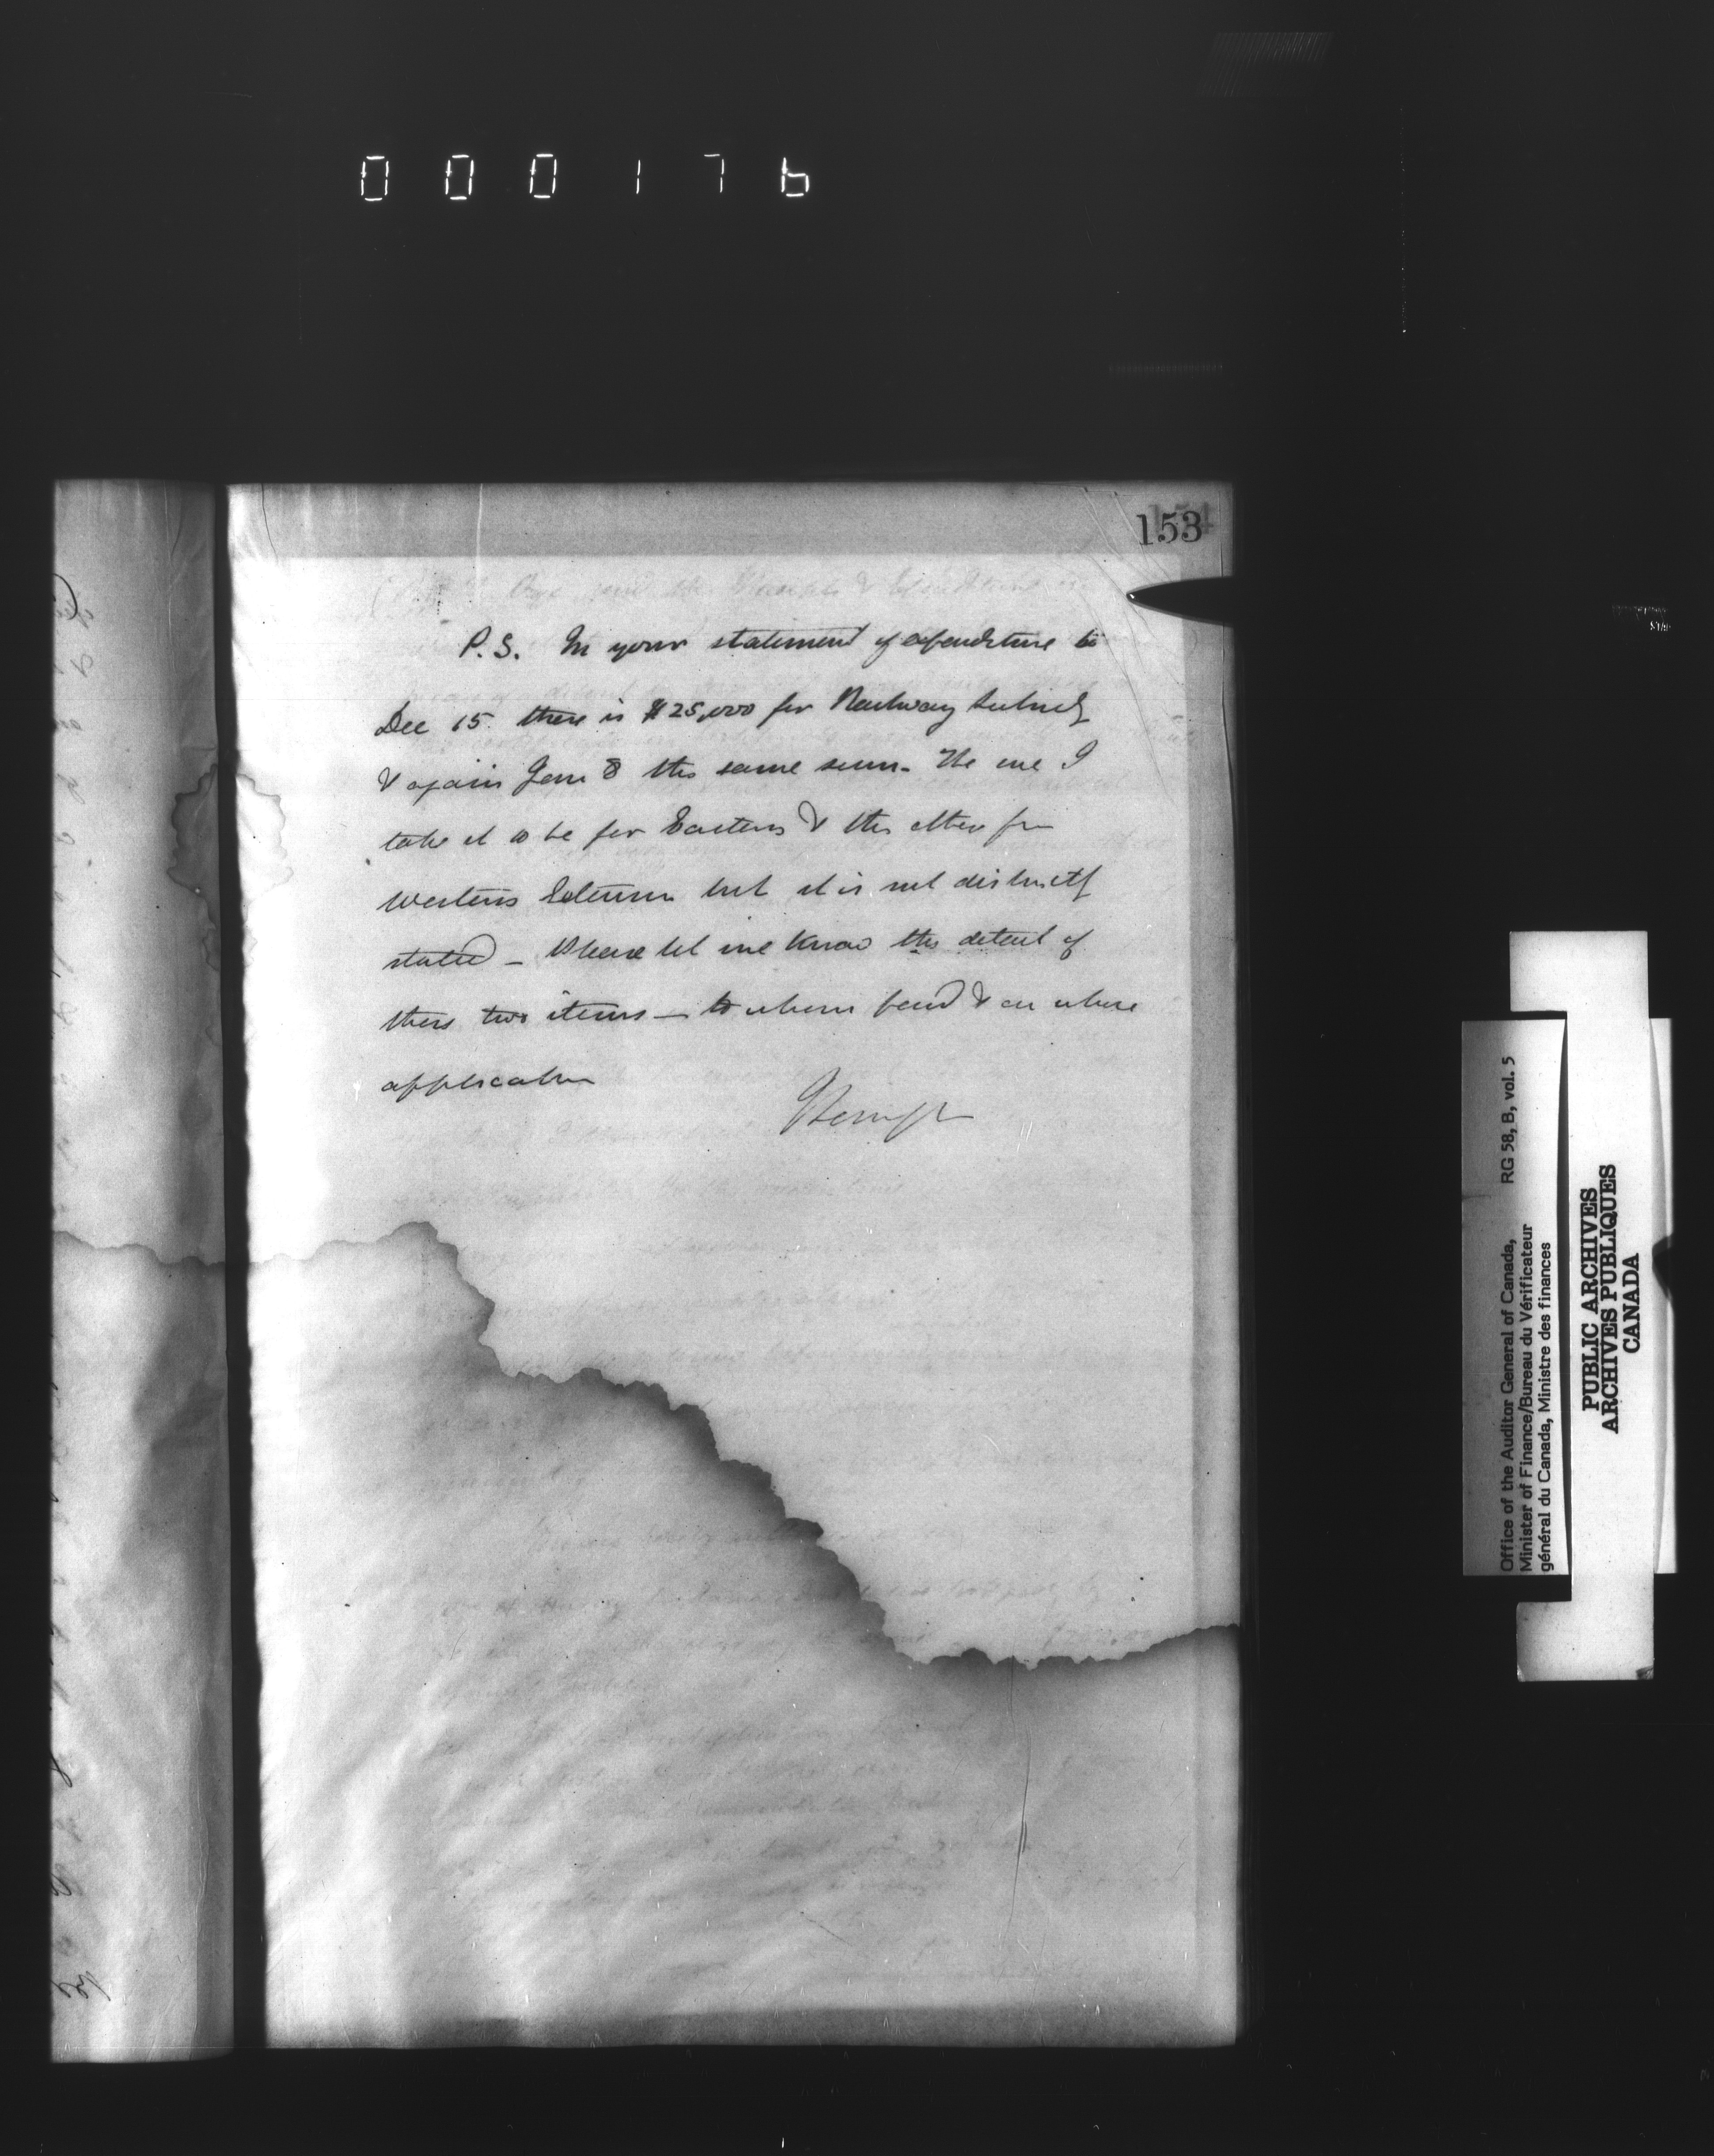 000176
153
P.S. In your statement of expenditure to
Dec 15 there is $25,000 for Railway Subsidy
& again Jany 8 the same sum. The one I
take it to be for Eastern & the other for
Western Extension but it is not distinctly
stated – Please let me know the detail of
these two items – to whom paid & on whose
application
Office of the Auditor General of Canada, RG 58, B, vol. 5
Minister of Finance/Bureau du Vérificateur
général du Canada, Ministre des finances
PUBLIC ARCHIVES
ARCHIVES PUBLIQUES
CANADA